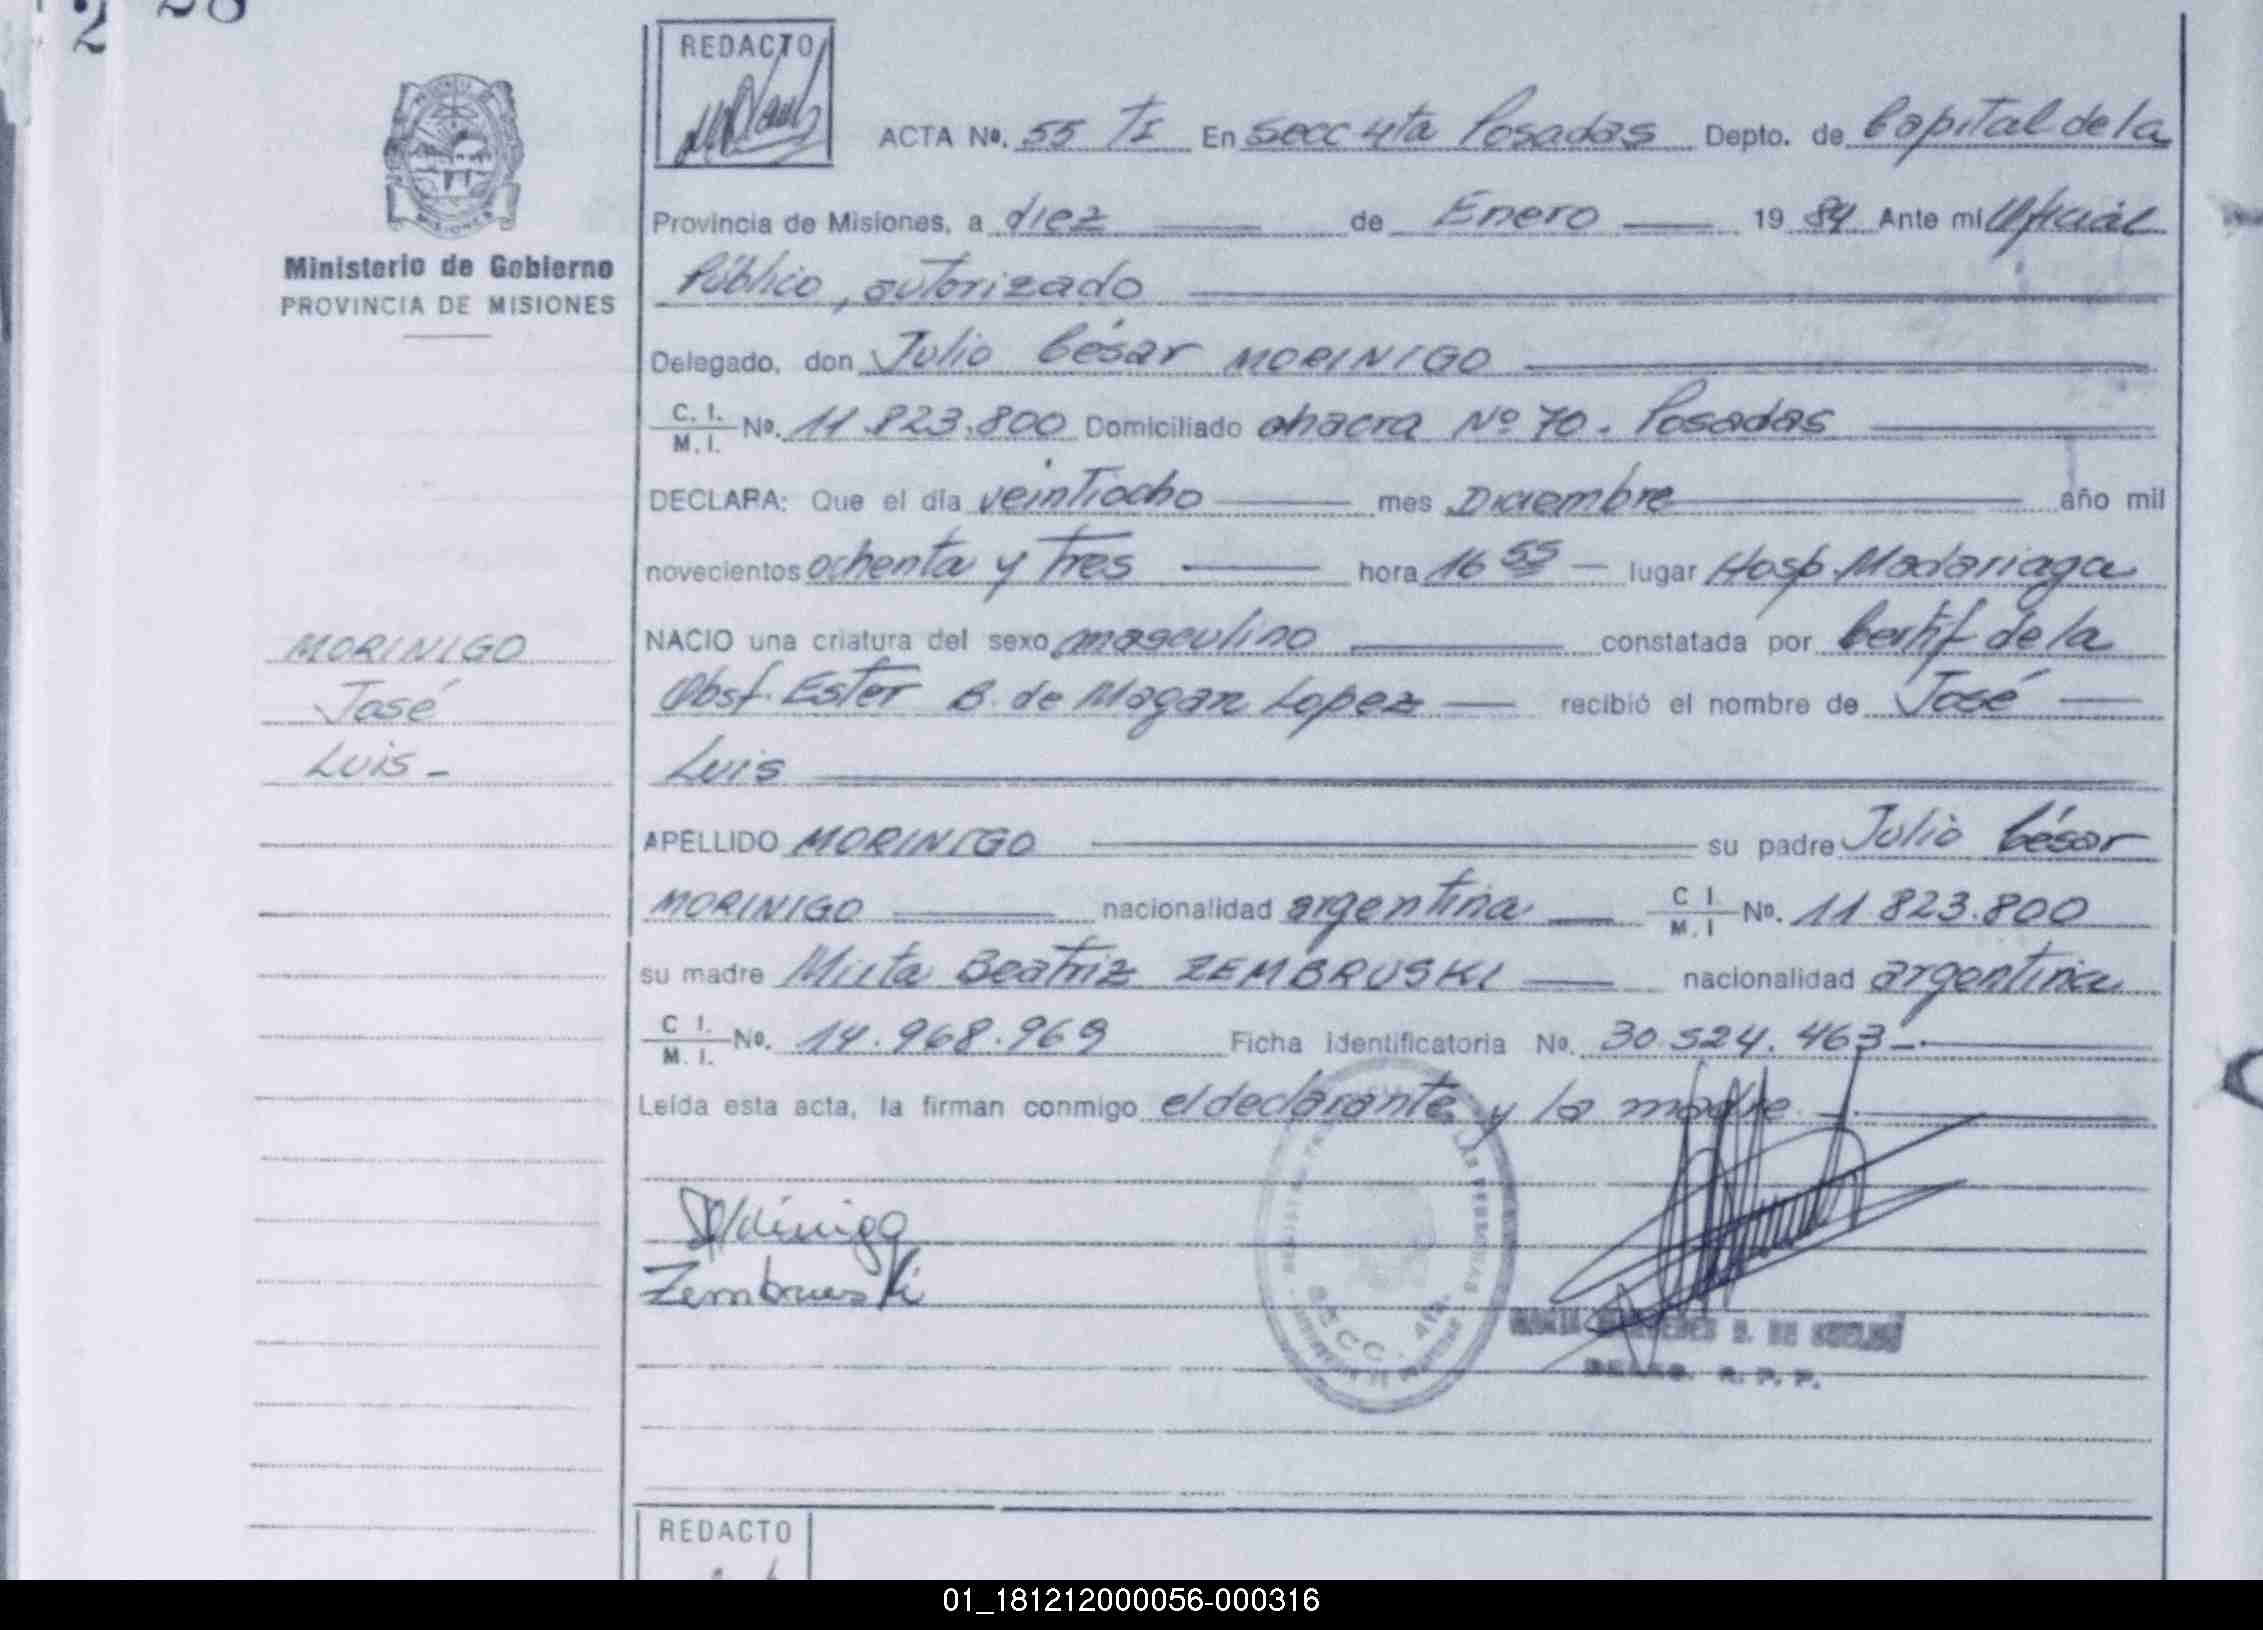 2 28
REDACTO
ACTA Nº. 55 TI En Secc 4ta Posadas Depto. de Capital de la
Provincia de Misiones, a diez de Enero 19 84 Ante mi Oficial
Público, autorizado
Ministerio de Gobierno
PROVINCIA DE MISIONES
Delegado, don Julio César MORINIGO
C. I. / M. I. Nº. 11.823.800 Domiciliado chacra Nº 70. Posadas
DECLARA: Que el día veintiocho mes Diciembre año mil
novecientos ochenta y Tres hora 16 55 lugar Hosp. Madariaga
NACIO una criatura del sexo masculino constatada por Certif de la
Obst. Ester B. de Magan Lopez recibió el nombre de José
Luis
MORINIGO
José
Luis -
APELLIDO MORINIGO su padre Julio César
MORINIGO nacionalidad argentina C I. / M. I Nº. 11 823.800
su madre Mirta Beatriz ZEMBRUSKI nacionalidad argentina
C I. / M. I. Nº. 14.968.969 Ficha identificatoria No. 30.524.463-
Leída esta acta, la firman conmigo el declarante y la madre
Zembruski
SECC. 4ta.
R. P. P.
REDACTO
01_181212000056-000316